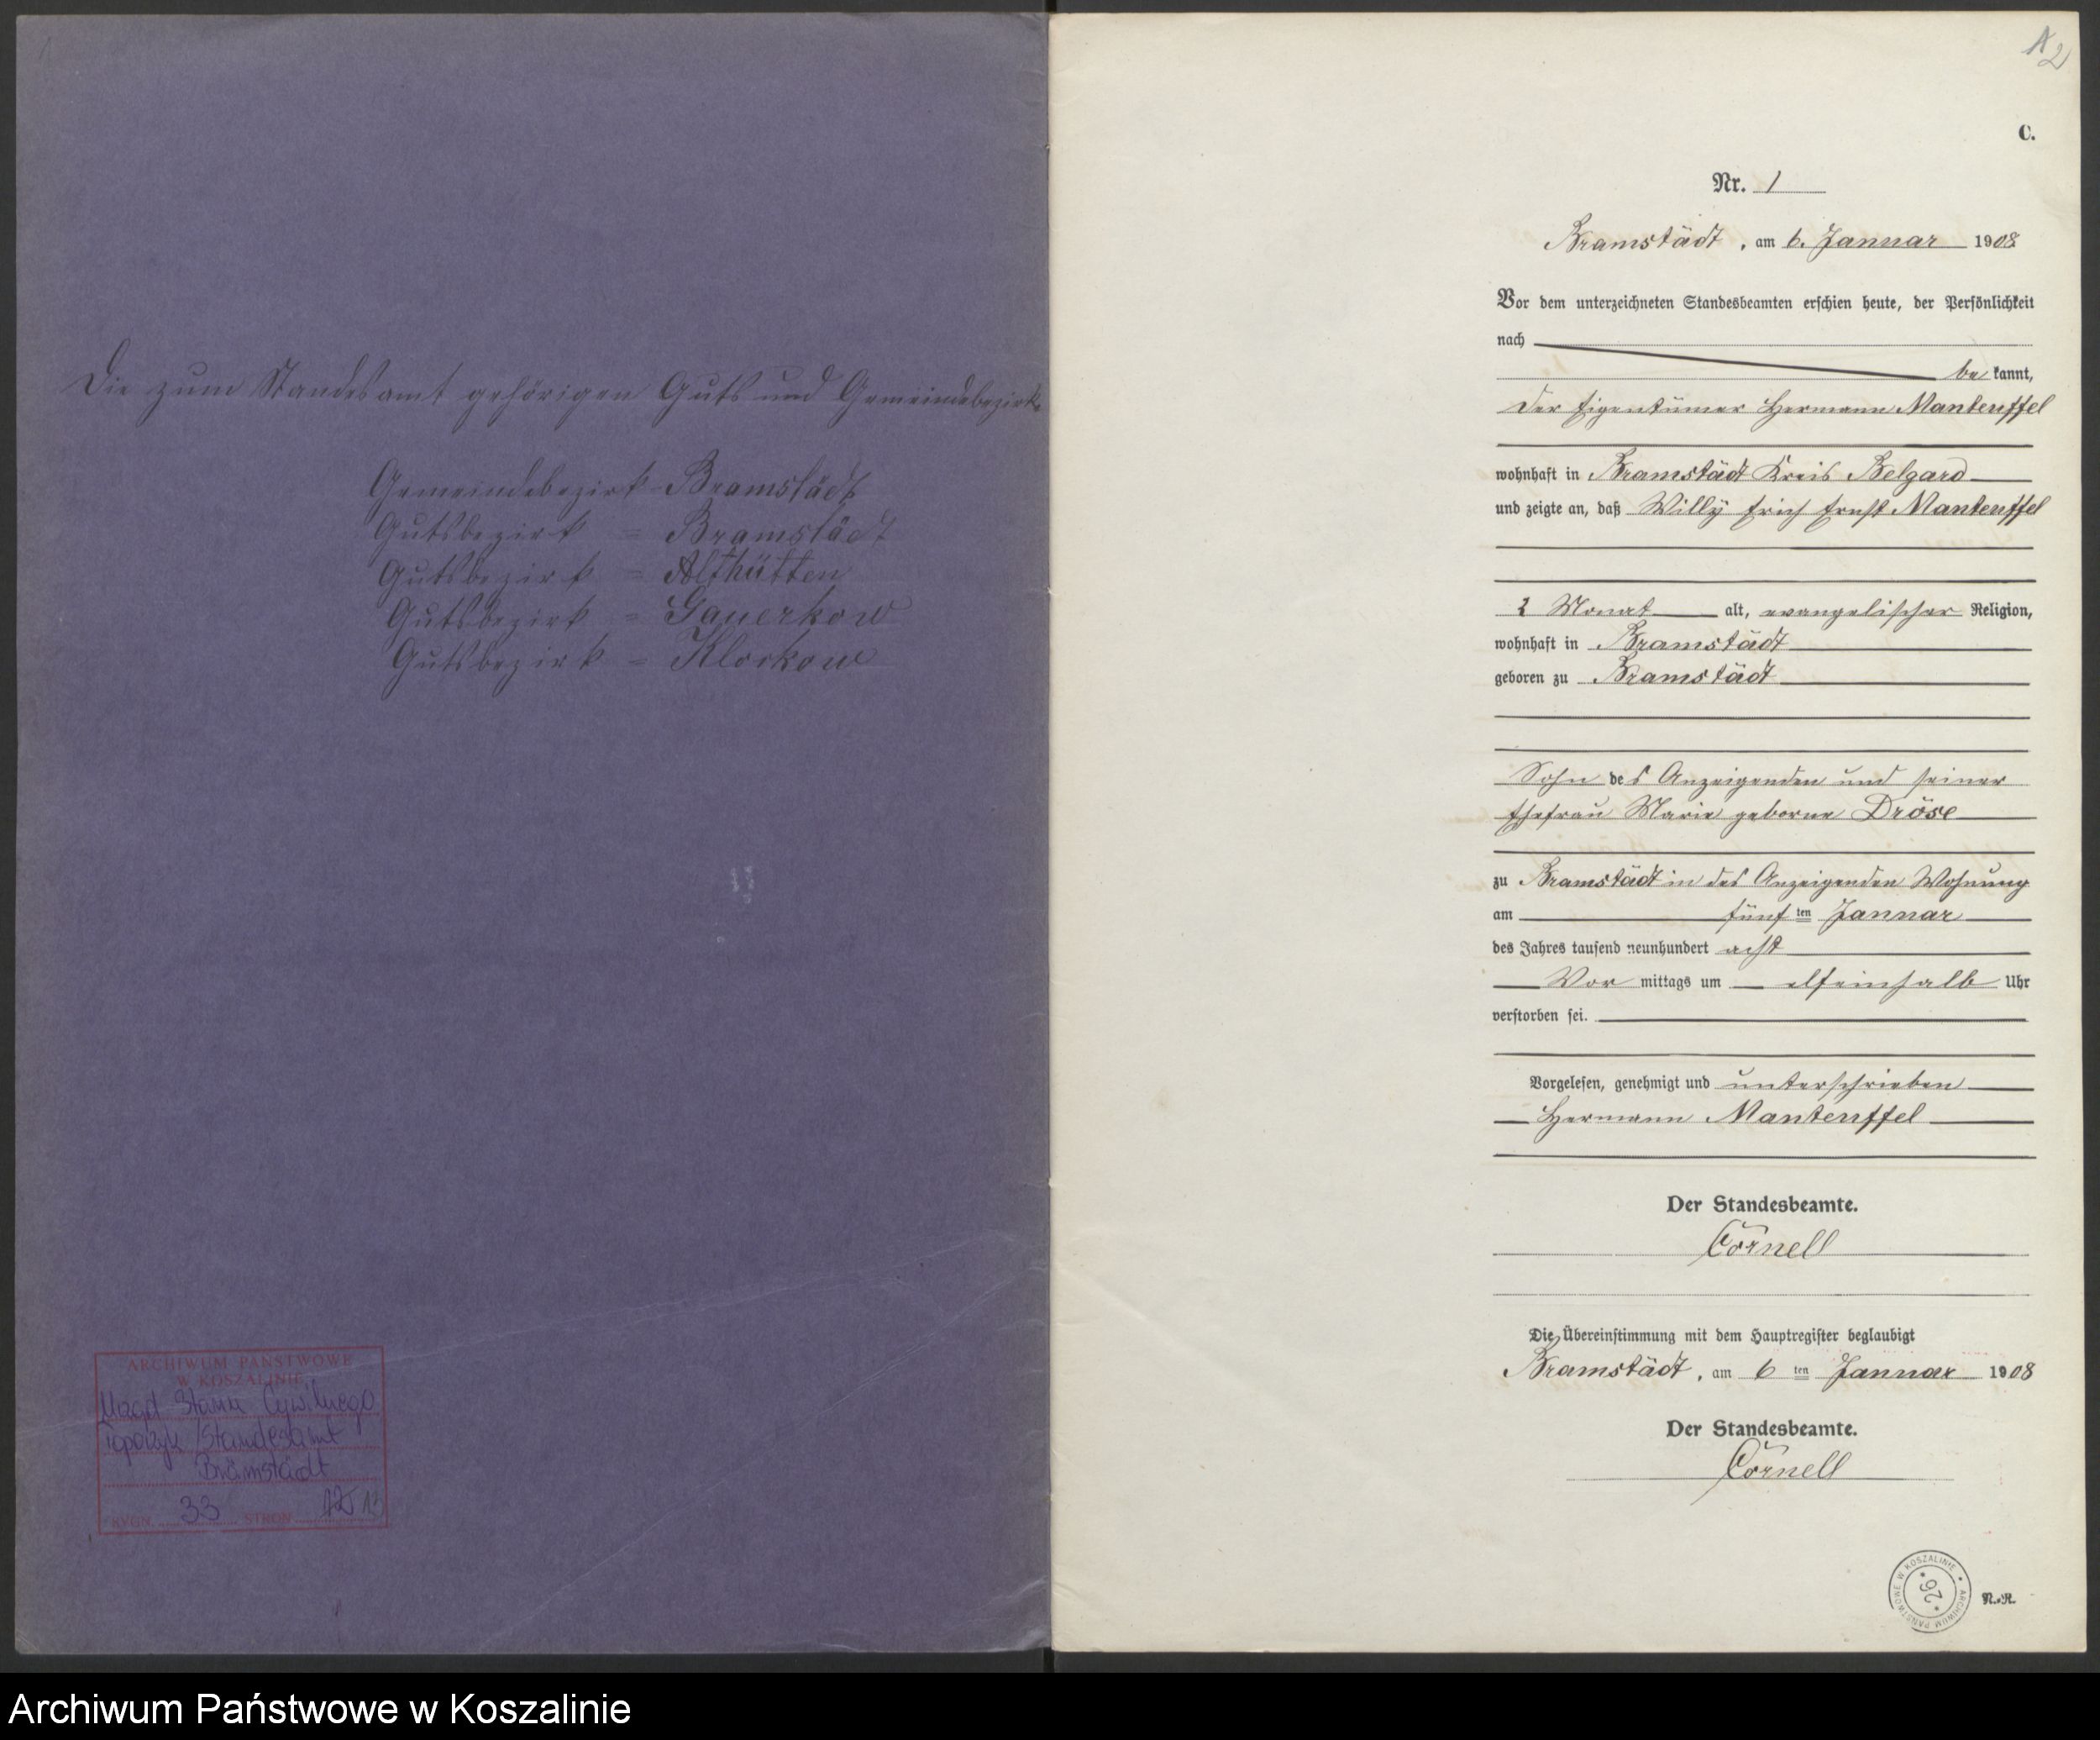 Die zum Standesamt gehörigen Guts und Gemeindebezirke
Gemeindebezirk - Bramstädt
Gutsbezirk = Bramstädt
Gutsbezirk = Althütten
Gutsbezirk = Gauerkow
Gutsbezirk = Klockow
ARCHIWUM PAŃSTWOWE
W KOSZALINIE
Urząd Stanu Cywilnego
Toporzyk /Standesamt
Bramstädt
SYGN. 33 STRON 13
2
C.
Nr. 1
Bramstädt, am 6. Januar 1908
Vor dem unterzeichneten Standesbeamten erschien heute, der Persönlichkeit
nach
be kannt,
der Eigentümer Hermann Manteuffel
wohnhaft in Bramstädt Kreis Belgard
und zeigte an, daß Willy Erich Ernst Manteuffel
2 Monat alt, evangelischer Religion,
wohnhaft in Bramstädt
geboren zu Bramstädt
Sohn des Anzeigenden und seiner
Ehefrau Marie geborne Dröse
zu Bramstädt in des Anzeigenden Wohnung
am fünf ten Januar
des Jahres tausend neunhundert acht
Vor mittags um elfeinhalb Uhr
verstorben sei.
Vorgelesen, genehmigt und unterschrieben
Hermann Manteuffel
Der Standesbeamte.
Cörnell
Die Übereinstimmung mit dem Hauptregister beglaubigt
Bramstädt, am 6 ten Januar 1908
Der Standesbeamte.
Cörnell
ARCHIWUM PAŃSTWOWE W KOSZALINIE
26
N.-R.
Archiwum Państwowe w Koszalinie